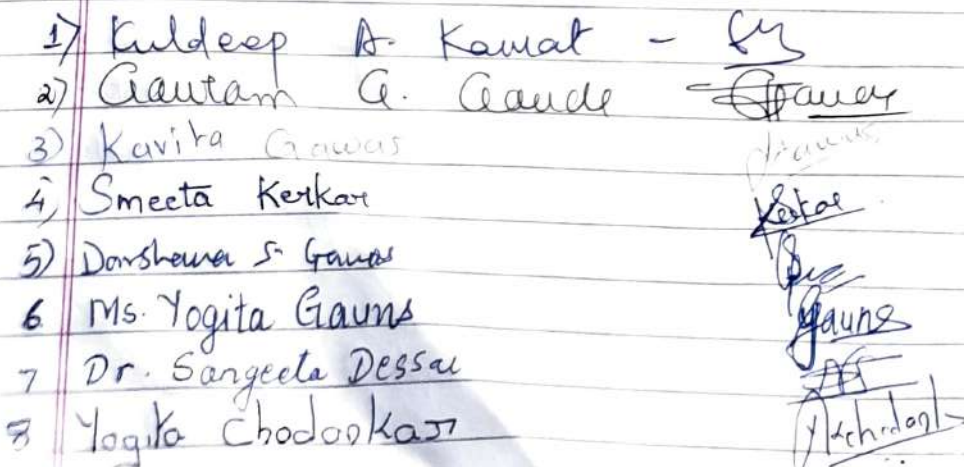 1) Kuldeep A. Kamat -
2) Gautam G. Gaude
3) Kavita Gawas
4) Smeeta Kerkar Kerkar
5) Darshana S. Gawas
6 Ms. Yogita Gauns Gauns
7 Dr. Sangeeta Dessai
8 Yogita Chodankar